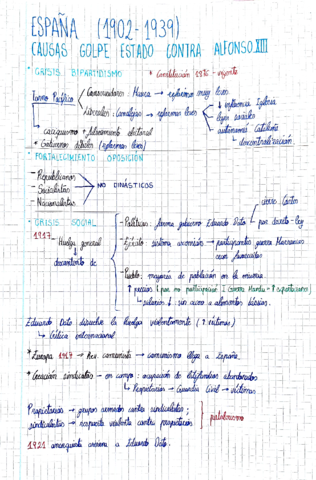 ESPAÑA (1902-1939)
CAUSAS GOLPE ESTADO CONTRA ALFONSO XIII
* CRISIS BIPARTIDISMO
* Constitución 1876 - vigente
Turno Pacífico
Conservadores: Maura → reformas muy leves
Liberales: Canalejas → reformas leves
↓ influencia Iglesia
leyes sociales
autonomía Cataluña
descentralización
caciquismo + falseamiento electoral
* Gobiernos débiles (reformas leves)
- FORTALECIMIENTO OPOSICIÓN
- Republicanos
- Socialistas
- Nacionalistas
NO DINÁSTICOS
- CRISIS SOCIAL
1917 - Huelga general
descontento de
- Políticos: forma gobierno Eduardo Dato
cierre Cortes
por decreto-ley
- Ejército: sistema ascensión → participantes guerra Marruecos
- Pueblo: mayoría de población en la miseria
↑ precios (por no participar I Guerra Mundial - ↑ exportaciones)
↳ salarios ↓: sin acceso a alimentos básicos.
Eduardo Dato disuelve la huelga violentamente (↑ víctimas)
↳ Crítica internacional
* Europa 1917 → Rev. comunista → comunismo llega a España.
* Creación sindicatos → en campo: ocupación de latifundios abandonados
↳ Propietarios → Guardia Civil → víctimas.
Propietarios → grupos armados contra sindicalistas;
sindicalistas → respuesta violenta contra propietarios
pistolerismo
1921 anarquista asesina a Eduardo Dato.